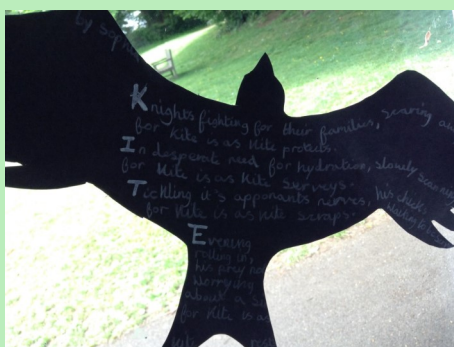 by Soph
Knights fighting for their families, soaring
for Kite is as Kite protects.
In desperate need for hydration, slowly
for Kite is as Kite surveys.
Tickling it's apponants nerves, his chicks
for Kite is as Kite scraps.
Evening
rolling in,
his prey no
worrying
about a
for Kite is as